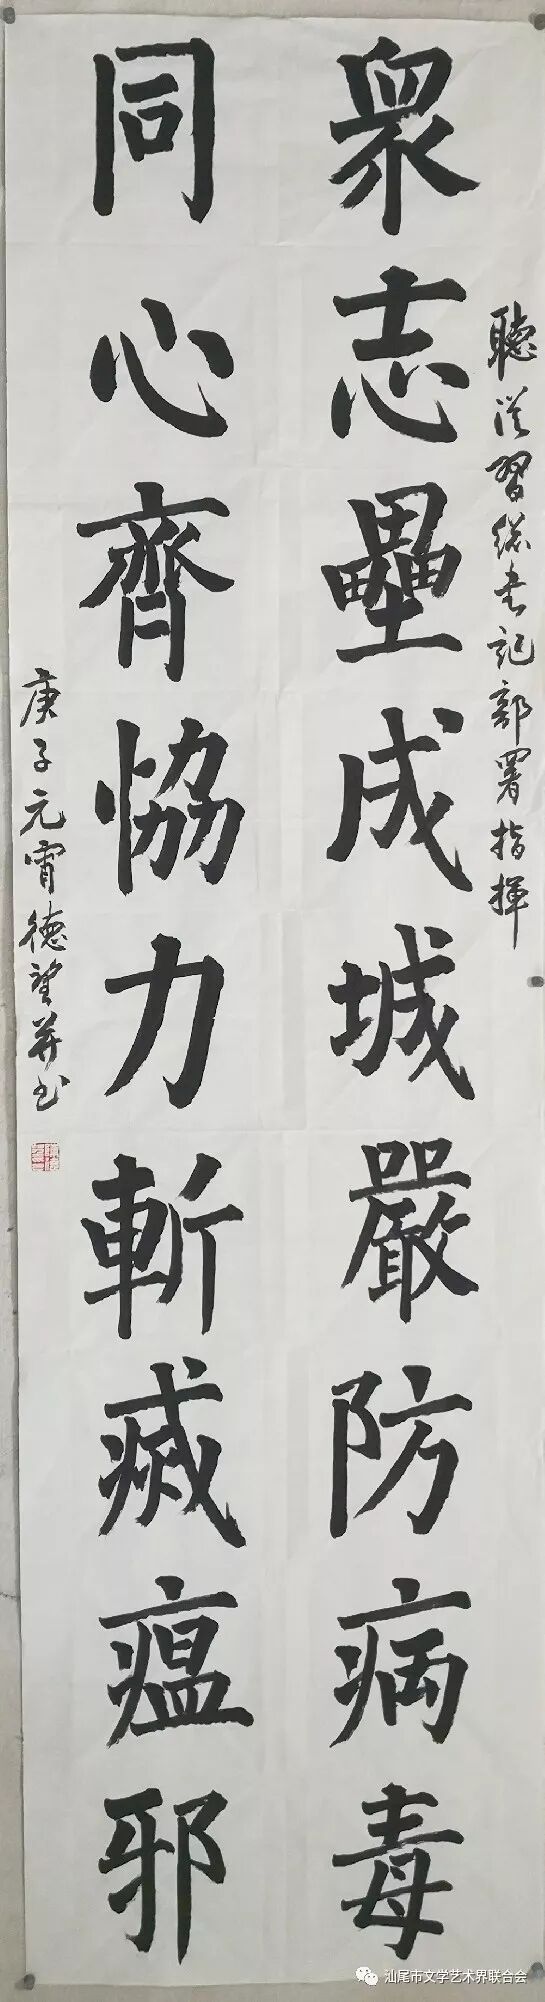 聽從習總书記部署指揮
衆志壘成城嚴防病毒
同心齊協力斬滅瘟邪
庚子元宵德望并书
汕尾市文学艺术界联合会